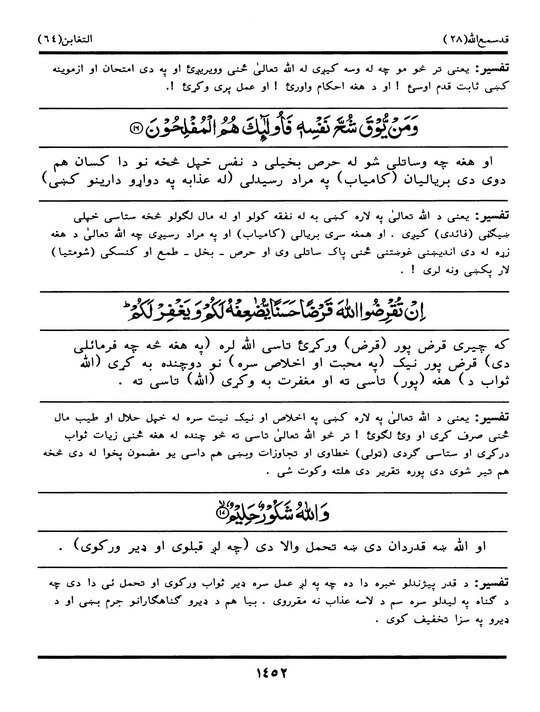 قدسمع الله(٢٨) التغابن(٦٤)
تفسیر: یعنی تر څو مو چه له وسه کیږی له الله تعالیٰ څنی وویریږئ او په دی امتحان او ازموینه
کښی ثابت قدم اوسئ ! او د هغه احکام واورئ ! او عمل پری وکړئ !.
وَمَنْ يُّوْقَ شُحَّ نَفْسِهٖ فَاُولٰٓئِكَ هُمُ الْمُفْلِحُوْنَ ⑯
او هغه چه وساتلی شو له حرص بخیلی د نفس خپل څخه نو دا کسان هم
دوی دی بریالیان (کامیاب) په مراد رسیدلی (له عذابه په دواړو دارینو کښی)
تفسیر: یعنی د الله تعالیٰ په لاره کښی به له نفقه کولو او له مال لګولو څخه ستاسی خپلی
ښیګڼی (فائدی) کیږی . او همغه سړی بریالی (کامیاب) او په مراد رسیږی چه الله تعالیٰ د هغه
زړه له دی اندیښنی غوښتنی څنی پاک ساتلی وی او حرص ـ بخل ـ طمع او کنسکی (شومتیا)
لار پکښی ونه لری ! .
اِنْ تُقْرِضُوا اللّٰهَ قَرْضًا حَسَنًا يُّضٰعِفْهُ لَكُمْ وَيَغْفِرْ لَكُمْ ؕ
که چیری قرض پور (قرض) ورکړئ تاسی الله لره (په هغه څه چه فرمائلی
دی) قرض پور نیک (په محبت او اخلاص سره) نو دوچنده به کړی (الله
ثواب د) هغه (پور) تاسی ته او مغفرت به وکړی (الله) تاسی ته .
تفسیر: یعنی د الله تعالیٰ په لاره کښی په اخلاص او نیک نیت سره له خپل حلال او طیب مال
څنی صرف کړی او وئ لګوئ ! تر څو الله تعالیٰ تاسی ته څو چنده له هغه څنی زیات ثواب
درکړی او ستاسی ګردی (تولی) خطاوی او تجاوزات وبښی هم داسی یو مضمون پخوا له دی څخه
هم تیر شوی دی پوره تقریر دی هلته وکوت شی .
وَاللّٰهُ شَكُوْرٌ حَلِيْمٌ ۙ⑰
او الله ښه قدردان دی ښه تحمل والا دی (چه لږ قبلوی او ډیر ورکوی) .
تفسیر: د قدر پیژندلو خبره دا ده چه په لږ عمل سره ډیر ثواب ورکوی او تحمل ئی دا دی چه
د ګناه په لیدلو سره سم د لاسه عذاب نه مقرروی . بیا هم د ډیرو ګناهګارانو جرم بښی او د
ډیرو په سزا تخفیف کوی .
١٤٥٢